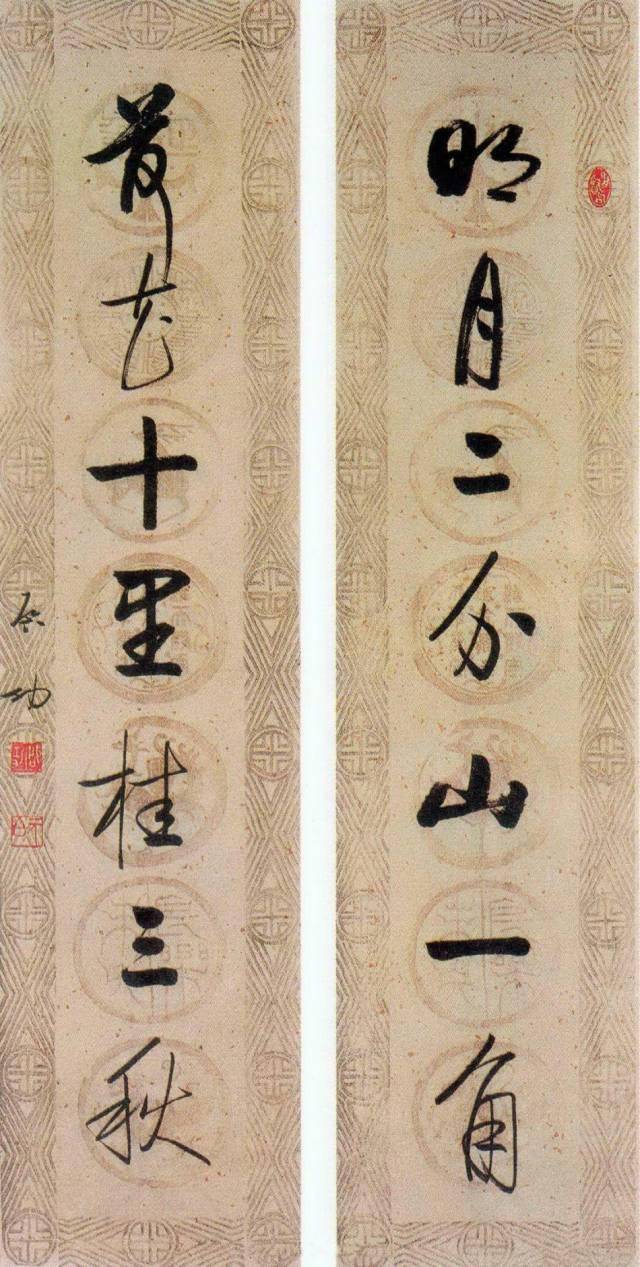 明月二分山一角
荷花十里桂三秋
启功
启功
元白